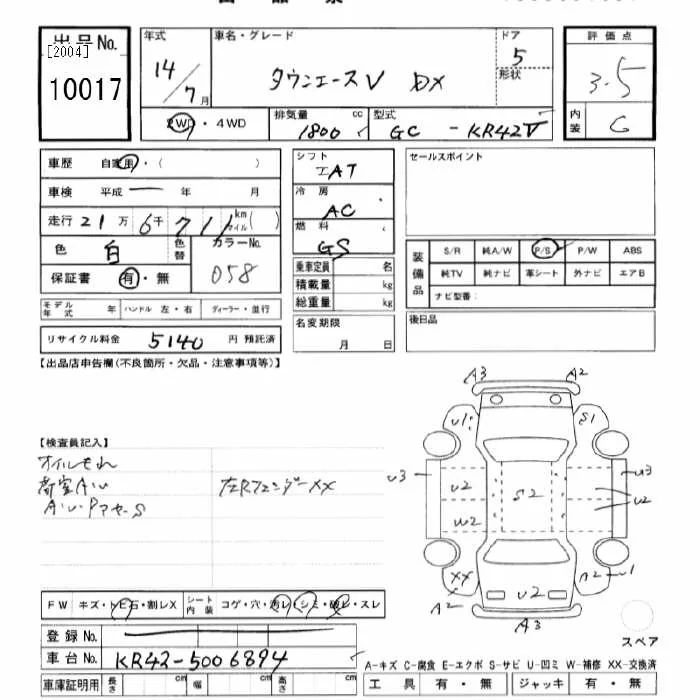 出品No.
[2004]
10017
年式
14/7月
車名・グレード
タウンエースV DX
ドア
5
形状
評価点
3.5
2WD・4WD
排気量
1800 cc
型式
GC - KR42V
内装
C
車歴 自家用・( )
車検 平成 ー 年 月
走行 21万6千711 km マイル ( )
色 白 色替
カラーNo.
058
保証書 有・無
モデル年式 年 ハンドル 左・右 ディーラー・並行
リサイクル料金 5140 円 預託済
シフト
IAT
冷房
AC
燃料
GS
乗車定員 名
積載量 kg
総重量 kg
名変期限
月 日
セールスポイント
装備品
S/R 純A/W P/S P/W ABS
純TV 純ナビ 革シート 外ナビ エアB
ナビ型番:
後日品
【出品店申告欄(不良箇所・欠品・注意事項等)】
【検査員記入】
オイルもれ
左RフェンダーXX
A3 A2
U1 S1
U3 U2 S2 U3
U2
W2
XX A2 U1
A2 U2
A3
スペア
FW キズ・トビ石・割レX シート内装 コゲ・穴・汚レ・シミ・破レ・スレ
登録No.
車台No. KR42-5006894
車庫証明用 長さ 幅 高さ
A-キズ C-腐食 E-エクボ S-サビ U-凹ミ W-補修 XX-交換済
工具 有・無 ジャッキ 有・無